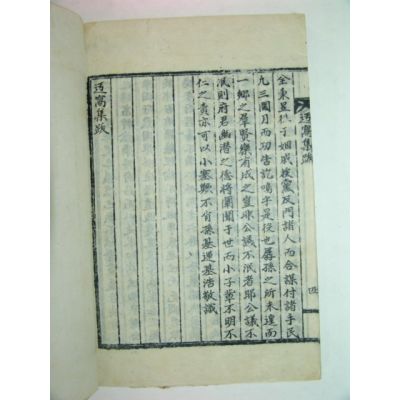 迃窩集跋
四
全秉昱 子姻戚族黨及門諸人而合謀付諸手民
九三閱月而功告訖噫乎是役也孱孫之所未遑而
一鄉之羣賢樂有成之豈非公議不泯者耶公議不
泯則府君幽潛之德將闡聞于世而小子輩不明不
仁之責亦可以小塞歟不肖孫基運基浩敬識
迃窩集跋